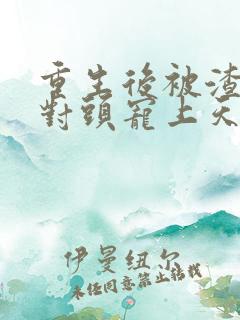 重生後被渣
對頭寵上天
伊曼紐尔
未任同意禁止转载